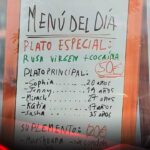 MENÚ DEL DÍA
PLATO ESPECIAL:
RUSA VIRGEN + COCAÍNA
50€
PLATO PRINCIPAL:
-Sophia ..... 20 años
-Jenny ..... 19 años
..... 27 años
-Katia ..... 17 años
-Sasha ..... 35 años
SUPLEMENTO: 20€